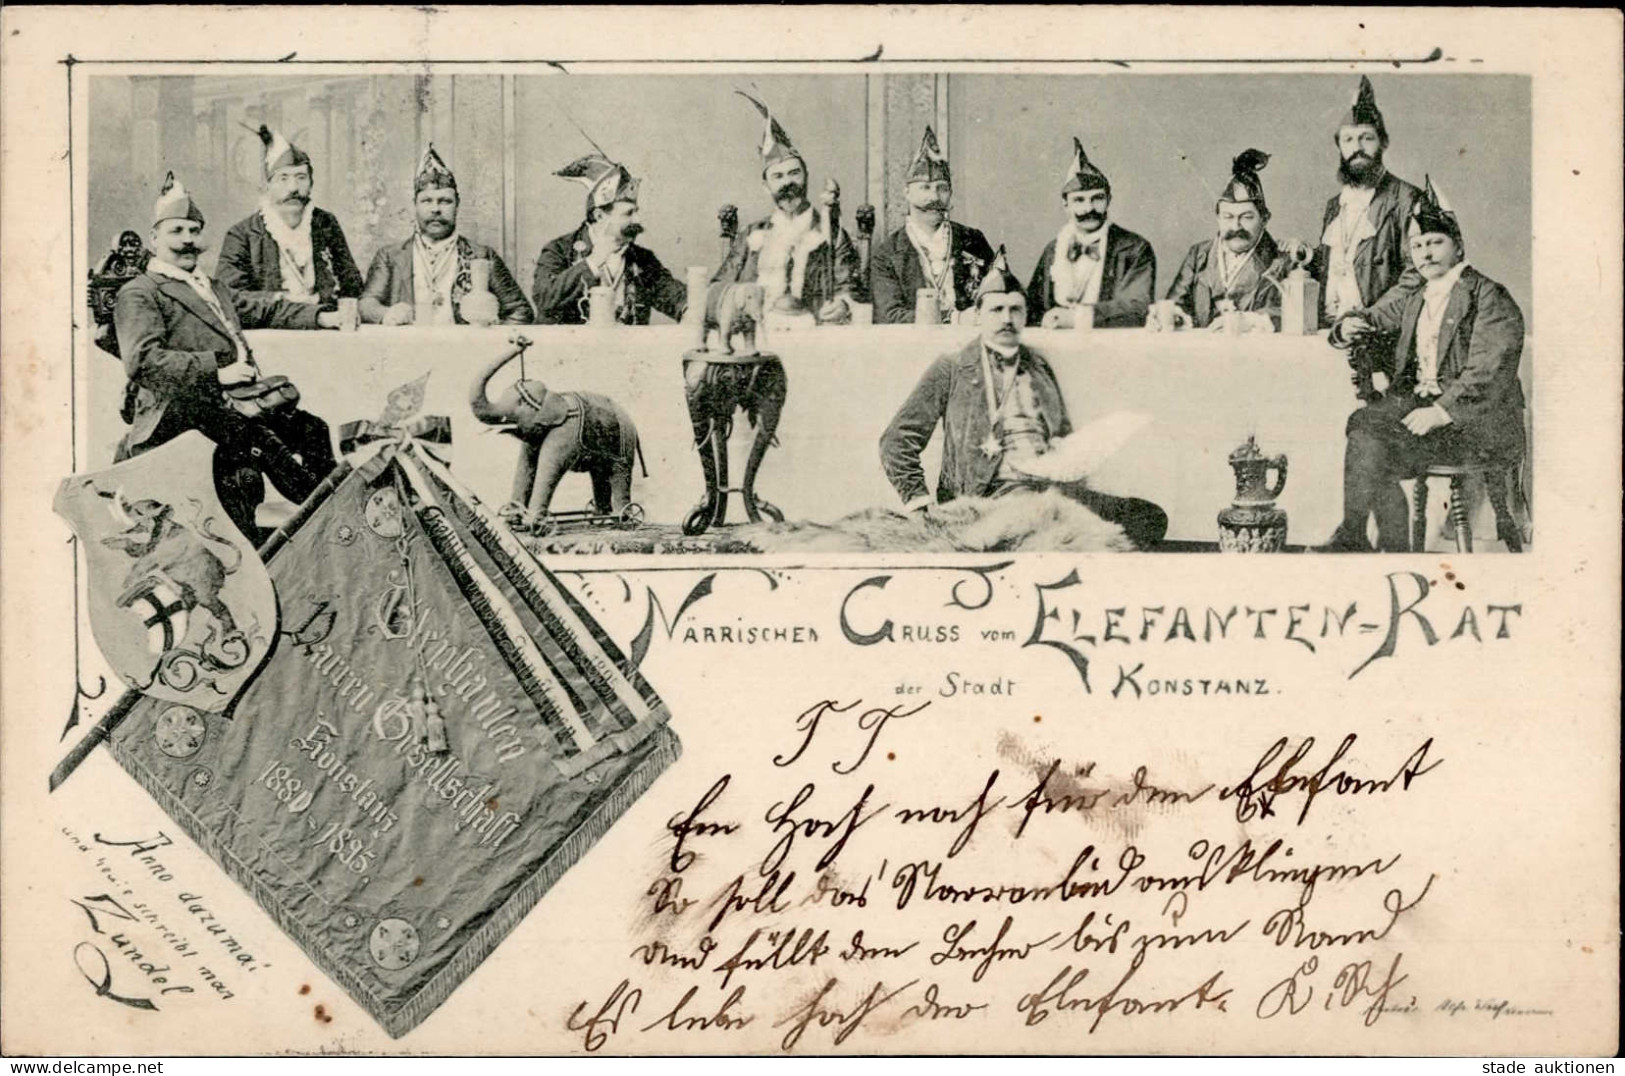 Närrischen Gruss vom Elefanten=Rat
der Stadt Konstanz.
Elephanten
Narren Gesellschaft
Konstanz
1880-1895.
Anno dazumal
und heute schreibt man
Zündel
T T.
Ein Hoch noch für den Elefant
So soll das Narrenlied ausklingen
und füllt den Becher bis zum Rand
Es lebe hoch der Elefant.
stade auktionen
www.delcampe.net